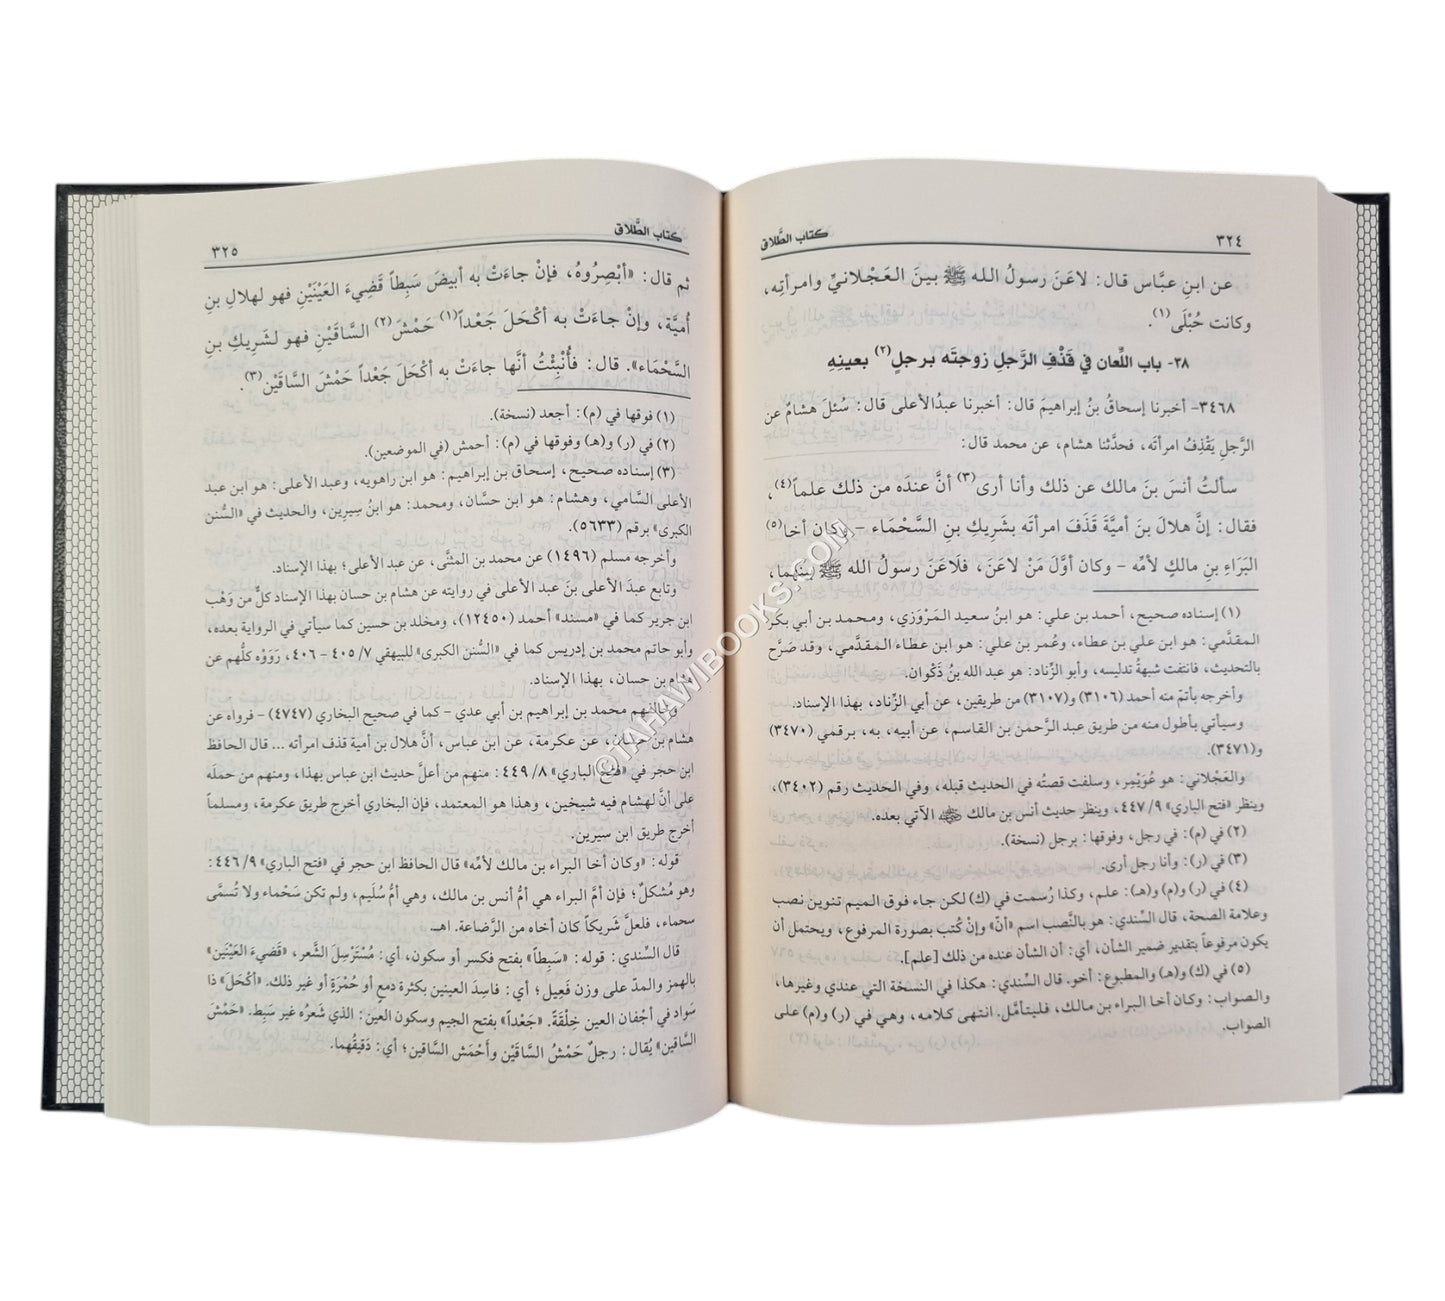 ٣٢٤
كتاب الطَّلاق
عن ابنِ عبَّاس قال: لاعَنَ رسولُ الله ﷺ بينَ العَجْلانيِّ وامرأتِه،
وكانت حُبْلَى(١).
٣٨- باب اللِّعان في قَذْفِ الرَّجلِ زوجتَه برجلٍ(٢) بعينِهِ
٣٤٦٨- أخبرنا إسحاقُ بنُ إبراهيمَ قال: أخبرنا عبدُالأعلى قال: سُئلَ هشامٌ عن
الرَّجلِ يَقْذِفُ امرأتَه، فحدَّثنا هشام، عن محمد قال:
سألتُ أنسَ بنَ مالك عن ذلك وأنا أرى(٣) أنَّ عندَه من ذلك علماً(٤)،
فقال: إنَّ هلالَ بنَ أميَّةَ قَذَفَ امرأتَه بشَرِيكِ بنِ السَّحْمَاء – وكان أخا(٥)
البَرَاءِ بنِ مالكٍ لأمِّه – وكان أوَّلَ مَنْ لاعَنَ، فَلَاعَنَ رسولُ الله ﷺ بينهما،
(١) إسناده صحيح، أحمد بن علي: هو ابنُ سعيد المَرْوَزي، ومحمد بن أبي بكر
المقدَّمي: هو ابن علي بن عطاء، وعُمر بن علي: هو ابن عطاء المقدَّمي، وقد صَرَّح
بالتحديث، فانتفت شبهةُ تدليسه، وأبو الزِّناد: هو عبد الله بنُ ذَكْوان.
وأخرجه بأتمَّ منه أحمد (٣١٠٦) و(٣١٠٧) من طريقين، عن أبي الزِّناد، بهذا الإسناد.
وسيأتي بأطول منه من طريق عبد الرَّحمن بن القاسم، عن أبيه، به، برقمي (٣٤٧٠)
و(٣٤٧١).
والعَجْلاني: هو عُوَيْمِر، وسلفت قصتُه في الحديث قبلَه، وفي الحديث رقم (٣٤٠٢)،
وينظر «فتح الباري» ٩/ ٤٤٧، وينظر حديث أنس بن مالك ﷺ الآتي بعده.
(٢) في (م): في رجل، وفوقها: برجل (نسخة).
(٣) في (ر): وأنا رجل أرى.
(٤) في (ر) و(م) و(هـ): علم، وكذا رُسمت في (ك) لكن جاء فوق الميم تنوين نصب
وعلامة الصحة، قال السِّندي: هو بالنَّصب اسم «أنّ» وإنْ كُتب بصورة المرفوع، ويحتمل أن
يكون مرفوعاً بتقدير ضمير الشأن، أي: أن الشأن عنده من ذلك [علم].
(٥) في (ك) و(هـ) والمطبوع: أخو. قال السِّندي: هكذا في النسخة التي عندي وغيرها،
والصواب: وكان أخا البراء بن مالك، فليتأمَّل. انتهى كلامه، وهي في (ر) و(م) على
الصواب.
كتاب الطَّلاق
٣٢٥
ثم قال: «أبْصِروُهُ، فإنْ جاءَتْ به أبيضَ سَبِطاً قَضِيءَ العَيْنَيْنِ فهو لهلالِ بنِ
أُميَّة، وإنْ جاءَتْ به أكْحَلَ جَعْداً(١) حَمْشَ(٢) السَّاقَيْنِ فهو لشَرِيكِ بنِ
السَّحْمَاء». قال: فأُنْبِئْتُ أنَّها جاءَتْ به أكْحَلَ جَعْداً حَمْشَ السَّاقَيْن(٣).
(١) فوقها في (م): أجعد (نسخة).
(٢) في (ر) و(هـ) وفوقها في (م): أحمش (في الموضعين).
(٣) إسناده صحيح، إسحاق بن إبراهيم: هو ابن راهويه، وعبد الأعلى: هو ابن عبد
الأعلى السَّامي، وهشام: هو ابن حسَّان، ومحمد: هو ابنُ سِيرين، والحديث في «السُّنن
الكبرى» برقم (٥٦٣٣).
وأخرجه مسلم (١٤٩٦) عن محمد بن المثَّى، عن عبد الأعلى؛ بهذا الإسناد.
وتابع عبدَ الأعلى بنَ عبد الأعلى في روايته عن هشام بن حسان بهذا الإسناد كلٌّ من وَهْب
ابن جرير كما في «مسند» أحمد (١٢٤٥٠)، ومخلد بن حسين كما سيأتي في الرواية بعده،
وأبو حاتم محمد بن إدريس كما في «السُّنن الكبرى» للبيهقي ٧/ ٤٠٥ – ٤٠٦، رَوَوْه كلُّهم عن
هشام بن حسان، بهذا الإسناد.
وخالفهم محمد بن إبراهيم بن أبي عدي – كما في صحيح البخاري (٤٧٤٧) – فرواه عن
هشام بن حسَّان، عن عكرمة، عن ابن عباس، أنَّ هلال بن أمية قذف امرأته ... قال الحافظ
ابن حجر في «فتح الباري» ٨/ ٤٤٩: منهم من أعلَّ حديث ابن عباس بهذا، ومنهم من حملَه
على أنَّ لهشام فيه شيخين، وهذا هو المعتمد، فإن البخاري أخرج طريق عكرمة، ومسلماً
أخرج طريق ابن سيرين.
قوله: «وكان أخا البراء بن مالك لأمِّه» قال الحافظ ابن حجر في «فتح الباري» ٩/ ٤٤٦:
وهو مُشكلٌ؛ فإن أمَّ البراء هي أمُّ أنس بن مالك، وهي أمُّ سُلَيم، ولم تكن سَحْماء ولا تُسمَّى
سحماء، فلعلَّ شَريكاً كان أخاه من الرَّضاعة. اهـ.
قال السِّندي: قوله: «سَبِطاً» بفتح فكسر أو سكون، أي: مُسْتَرْسِلَ الشَّعر، «قَضيءَ العَيْنَين»
بالهمز والمدّ على وزن فَعِيل؛ أي: فاسِدَ العينين بكثرة دمعٍ أو حُمْرَةٍ أو غير ذلك. «أكْحَلَ» ذا
سَواد في أجْفان العين خِلْقَةً. «جَعْداً» بفتح الجيم وسكون العين: الذي شَعرُه غير سَبِط. «حَمْشَ
السَّاقين» يُقال: رجلٌ حَمْشُ السَّاقَيْن وأحْمَش السَّاقين؛ أي: دَقيقُهما.
©TAHAWIBOOKS.COM